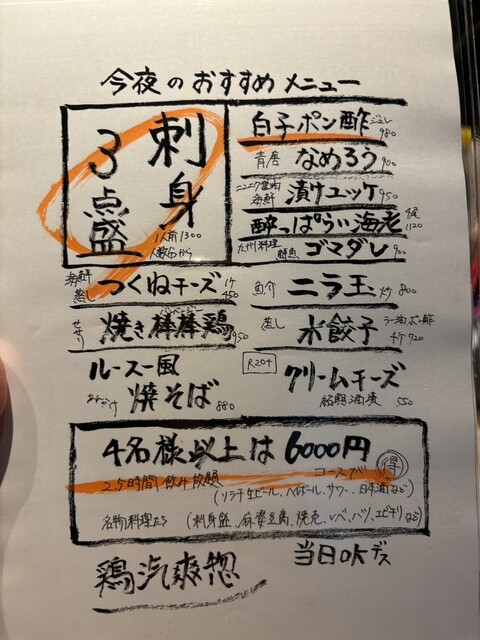 今夜のおすすめメニュー
刺身
3点盛
1人前1300
人数分から
白子ポン酢ジュレ 980
青唐 なめろう 900
ニンニク醤油 海鮮 漬けユッケ 950
酔っぱらい海老 1尾 1120
九州料理 鯛魚 ゴマダレ 900
海鮮蒸し つくねチーズ 1ケ 450
魚介 ニラ玉炒 800
せせり 焼き棒棒鶏 950
蒸し 水餃子 ラー油ポン酢 4ケ 720
ルースー風
あんかけ 焼そば 880
R20+ クリームチーズ
紹興酒漬 550
4名様以上は6000円
コースが 得
2.5時間飲み放題
(ソラチ生ビール、ハイボール、サワー、日本酒など)
名物料理たち (刺身盛、麻婆豆腐、焼売、レバ、ハツ、エビチリなど)
当日OKデス